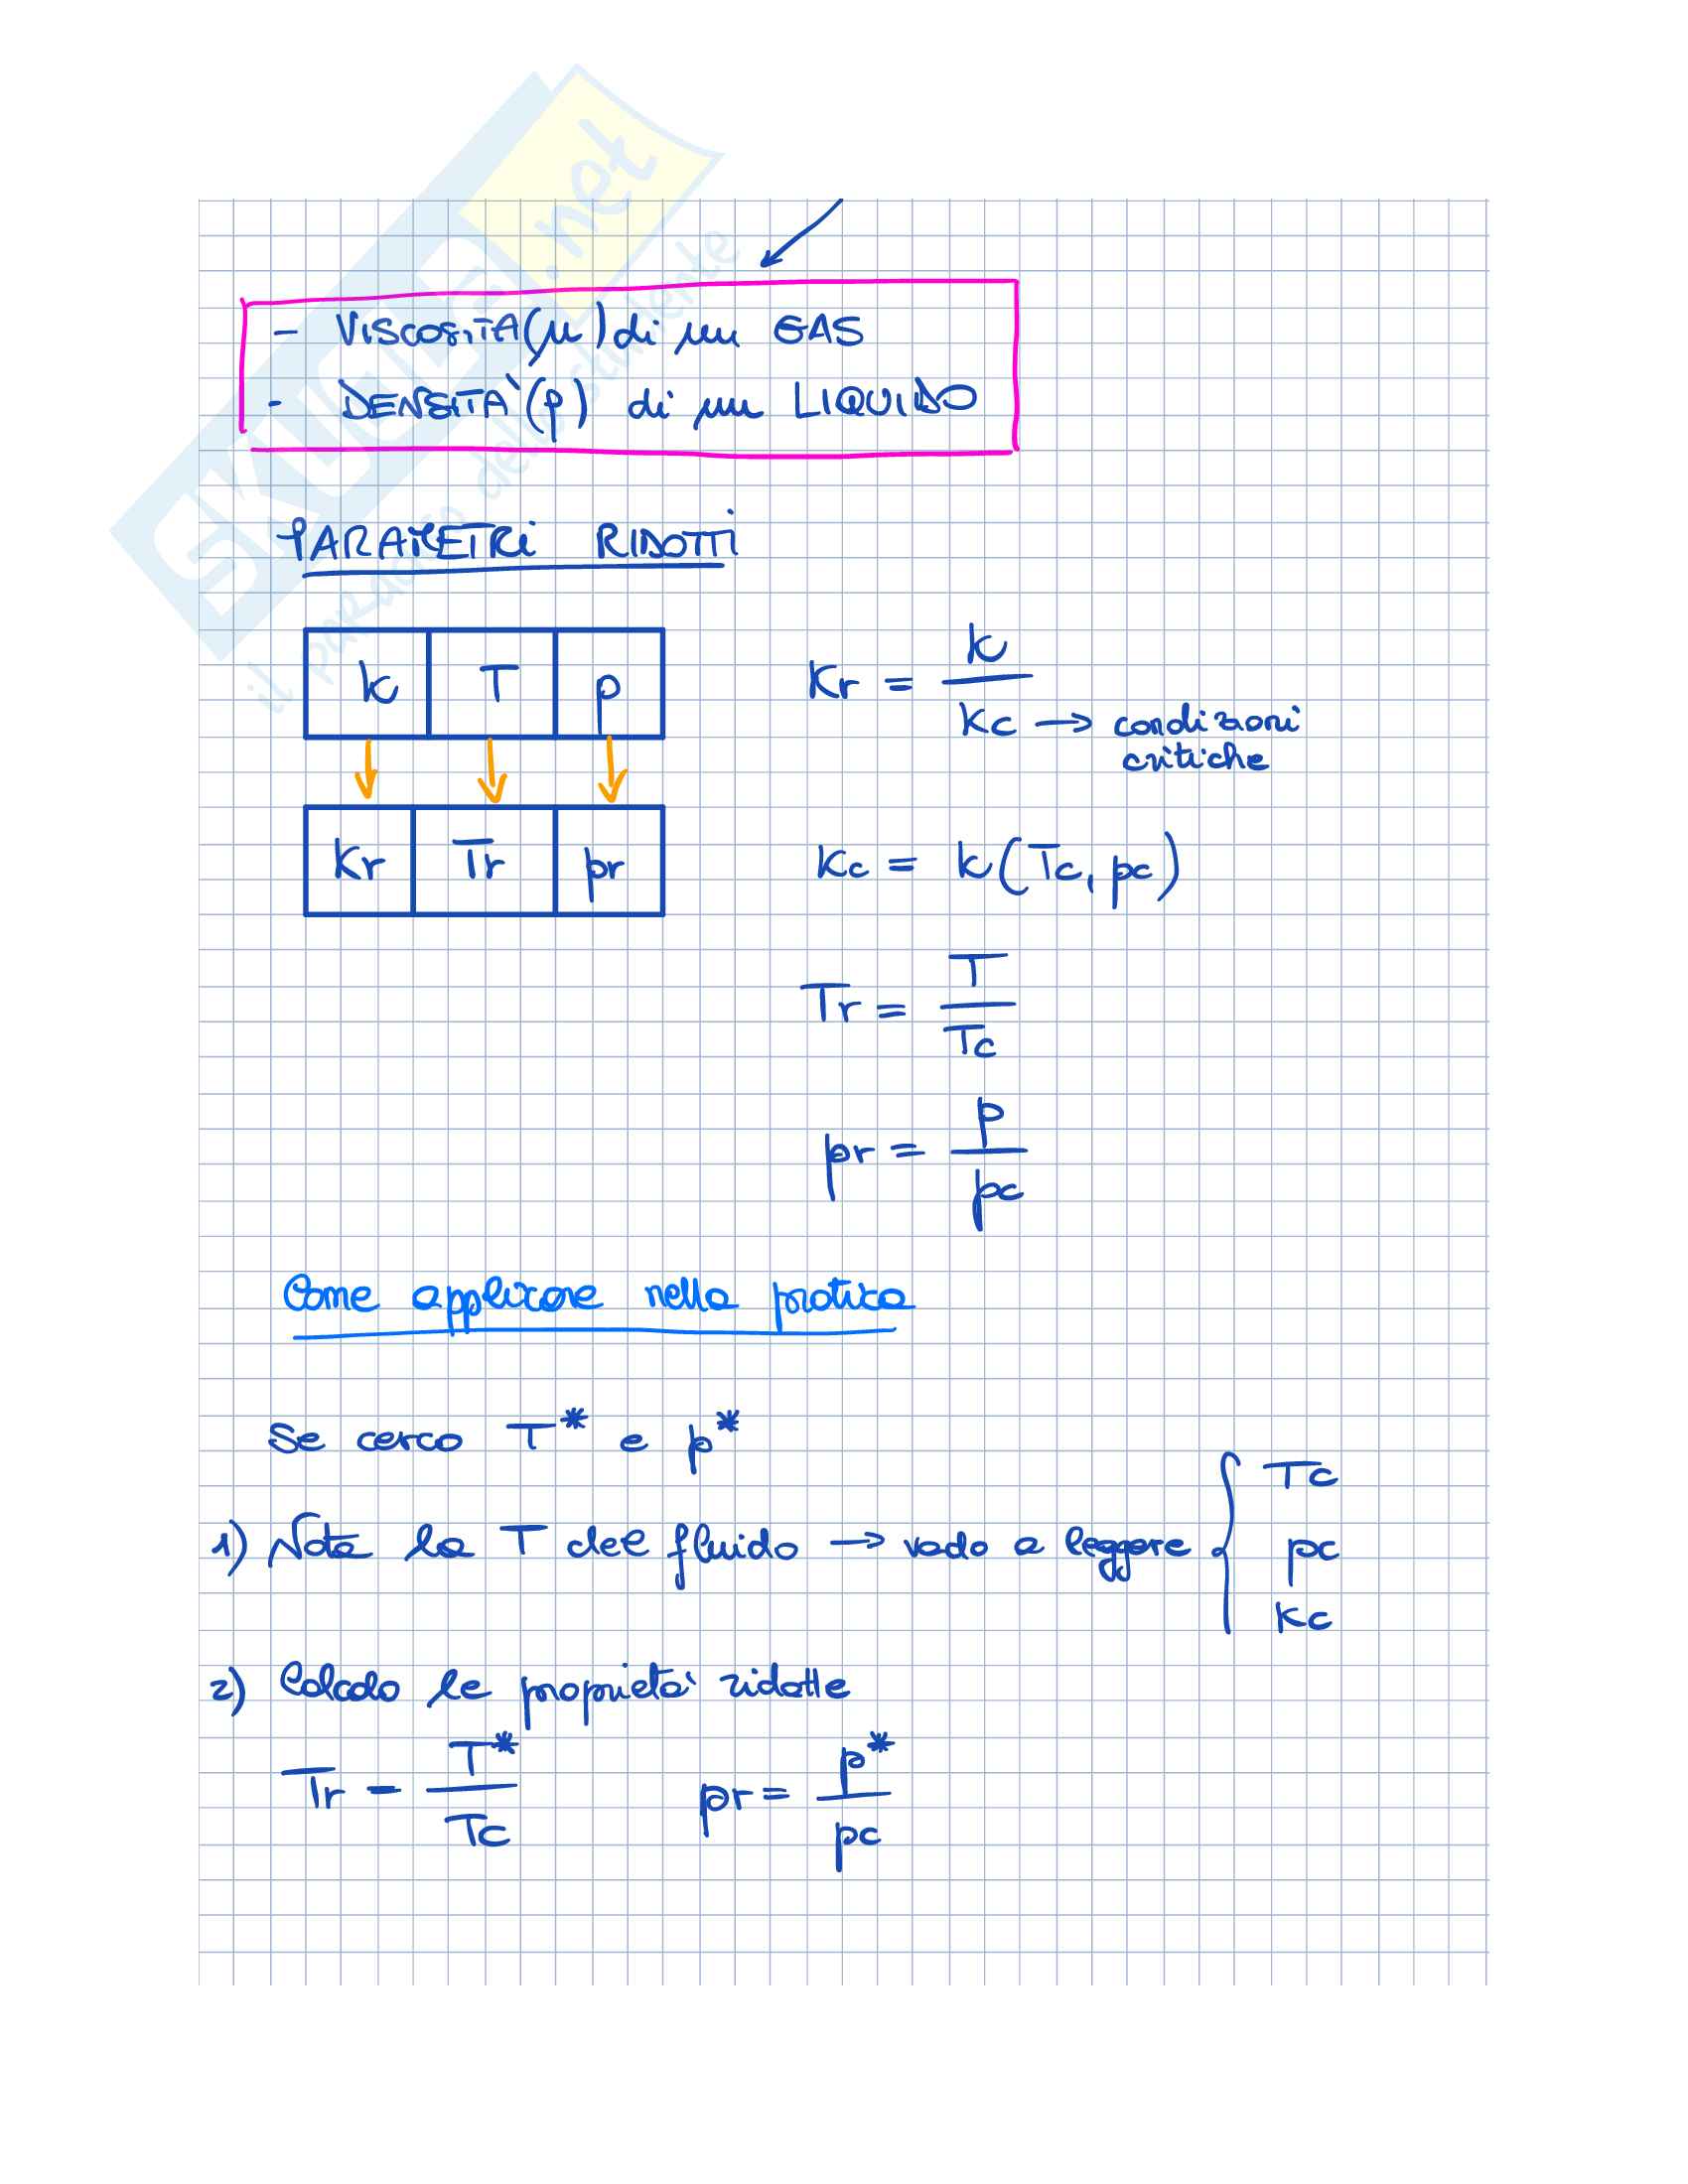 SKUOLA.net
il paradiso dello studente
- VISCOSITÀ (μ) di un GAS
- DENSITÀ (ρ) di un LIQUIDO
PARAMETRI RIDOTTI
k T p
kr Tr pr
kr = k / kc → condizioni critiche
kc = k (Tc, pc)
Tr = T / Tc
pr = p / pc
Come applicare nella pratica
Se cerco T* e p*
1) Nota la T del fluido → vado a leggere { Tc pc kc
2) Calcolo le proprietà ridotte
Tr = T* / Tc pr = p* / pc